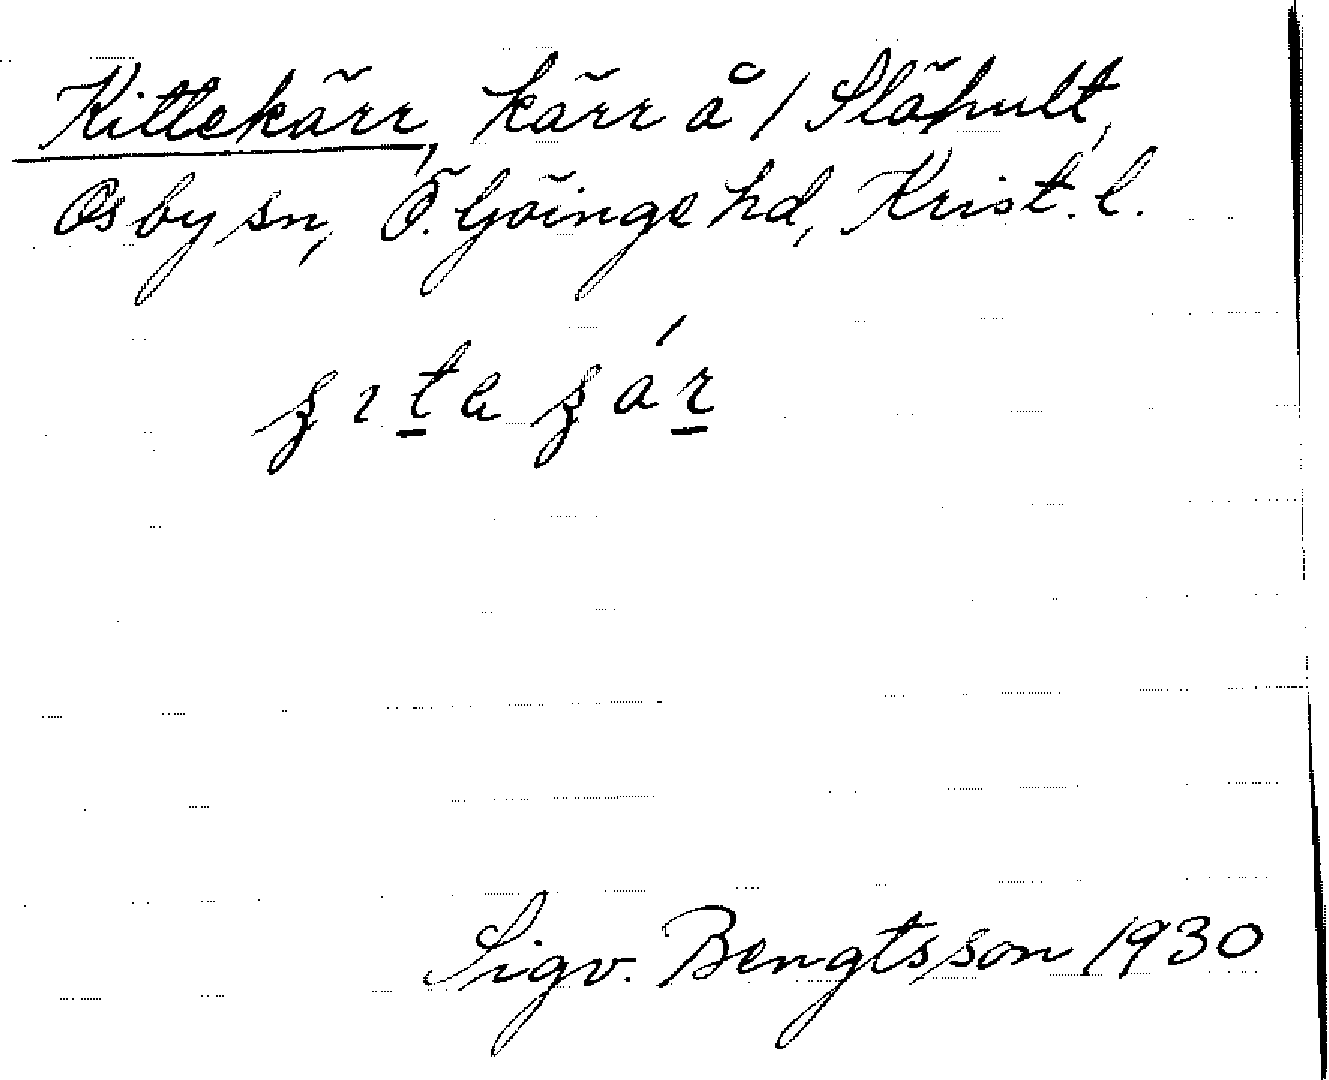 Kittekärr, kärr å / Slähult,
Osby sn, Ö. Göinge hd, Krist. l.
Sigv. Bengtsson 1930